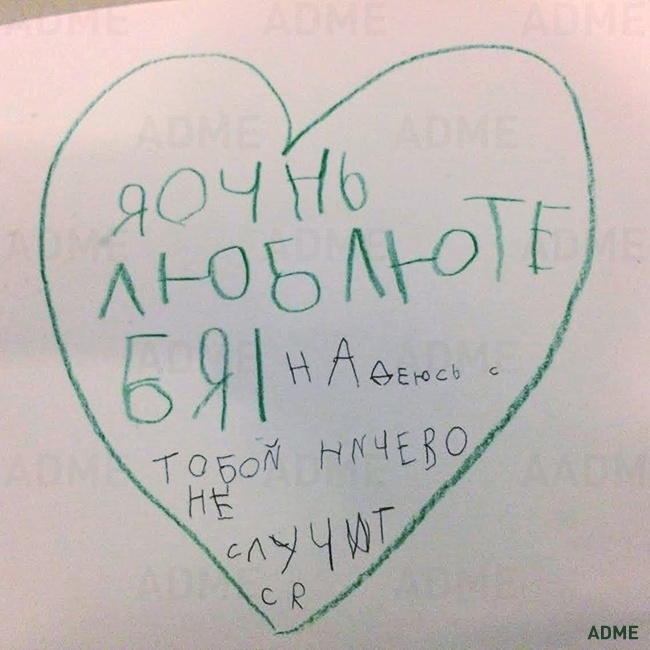 Я ОЧНЬ
ЛЮБЛЮ ТЕ
БЯ! НАДЕЮСЬ С
ТОБОЙ НИЧЕВО
НЕ
СЛУЧИТ
СЯ
ADME